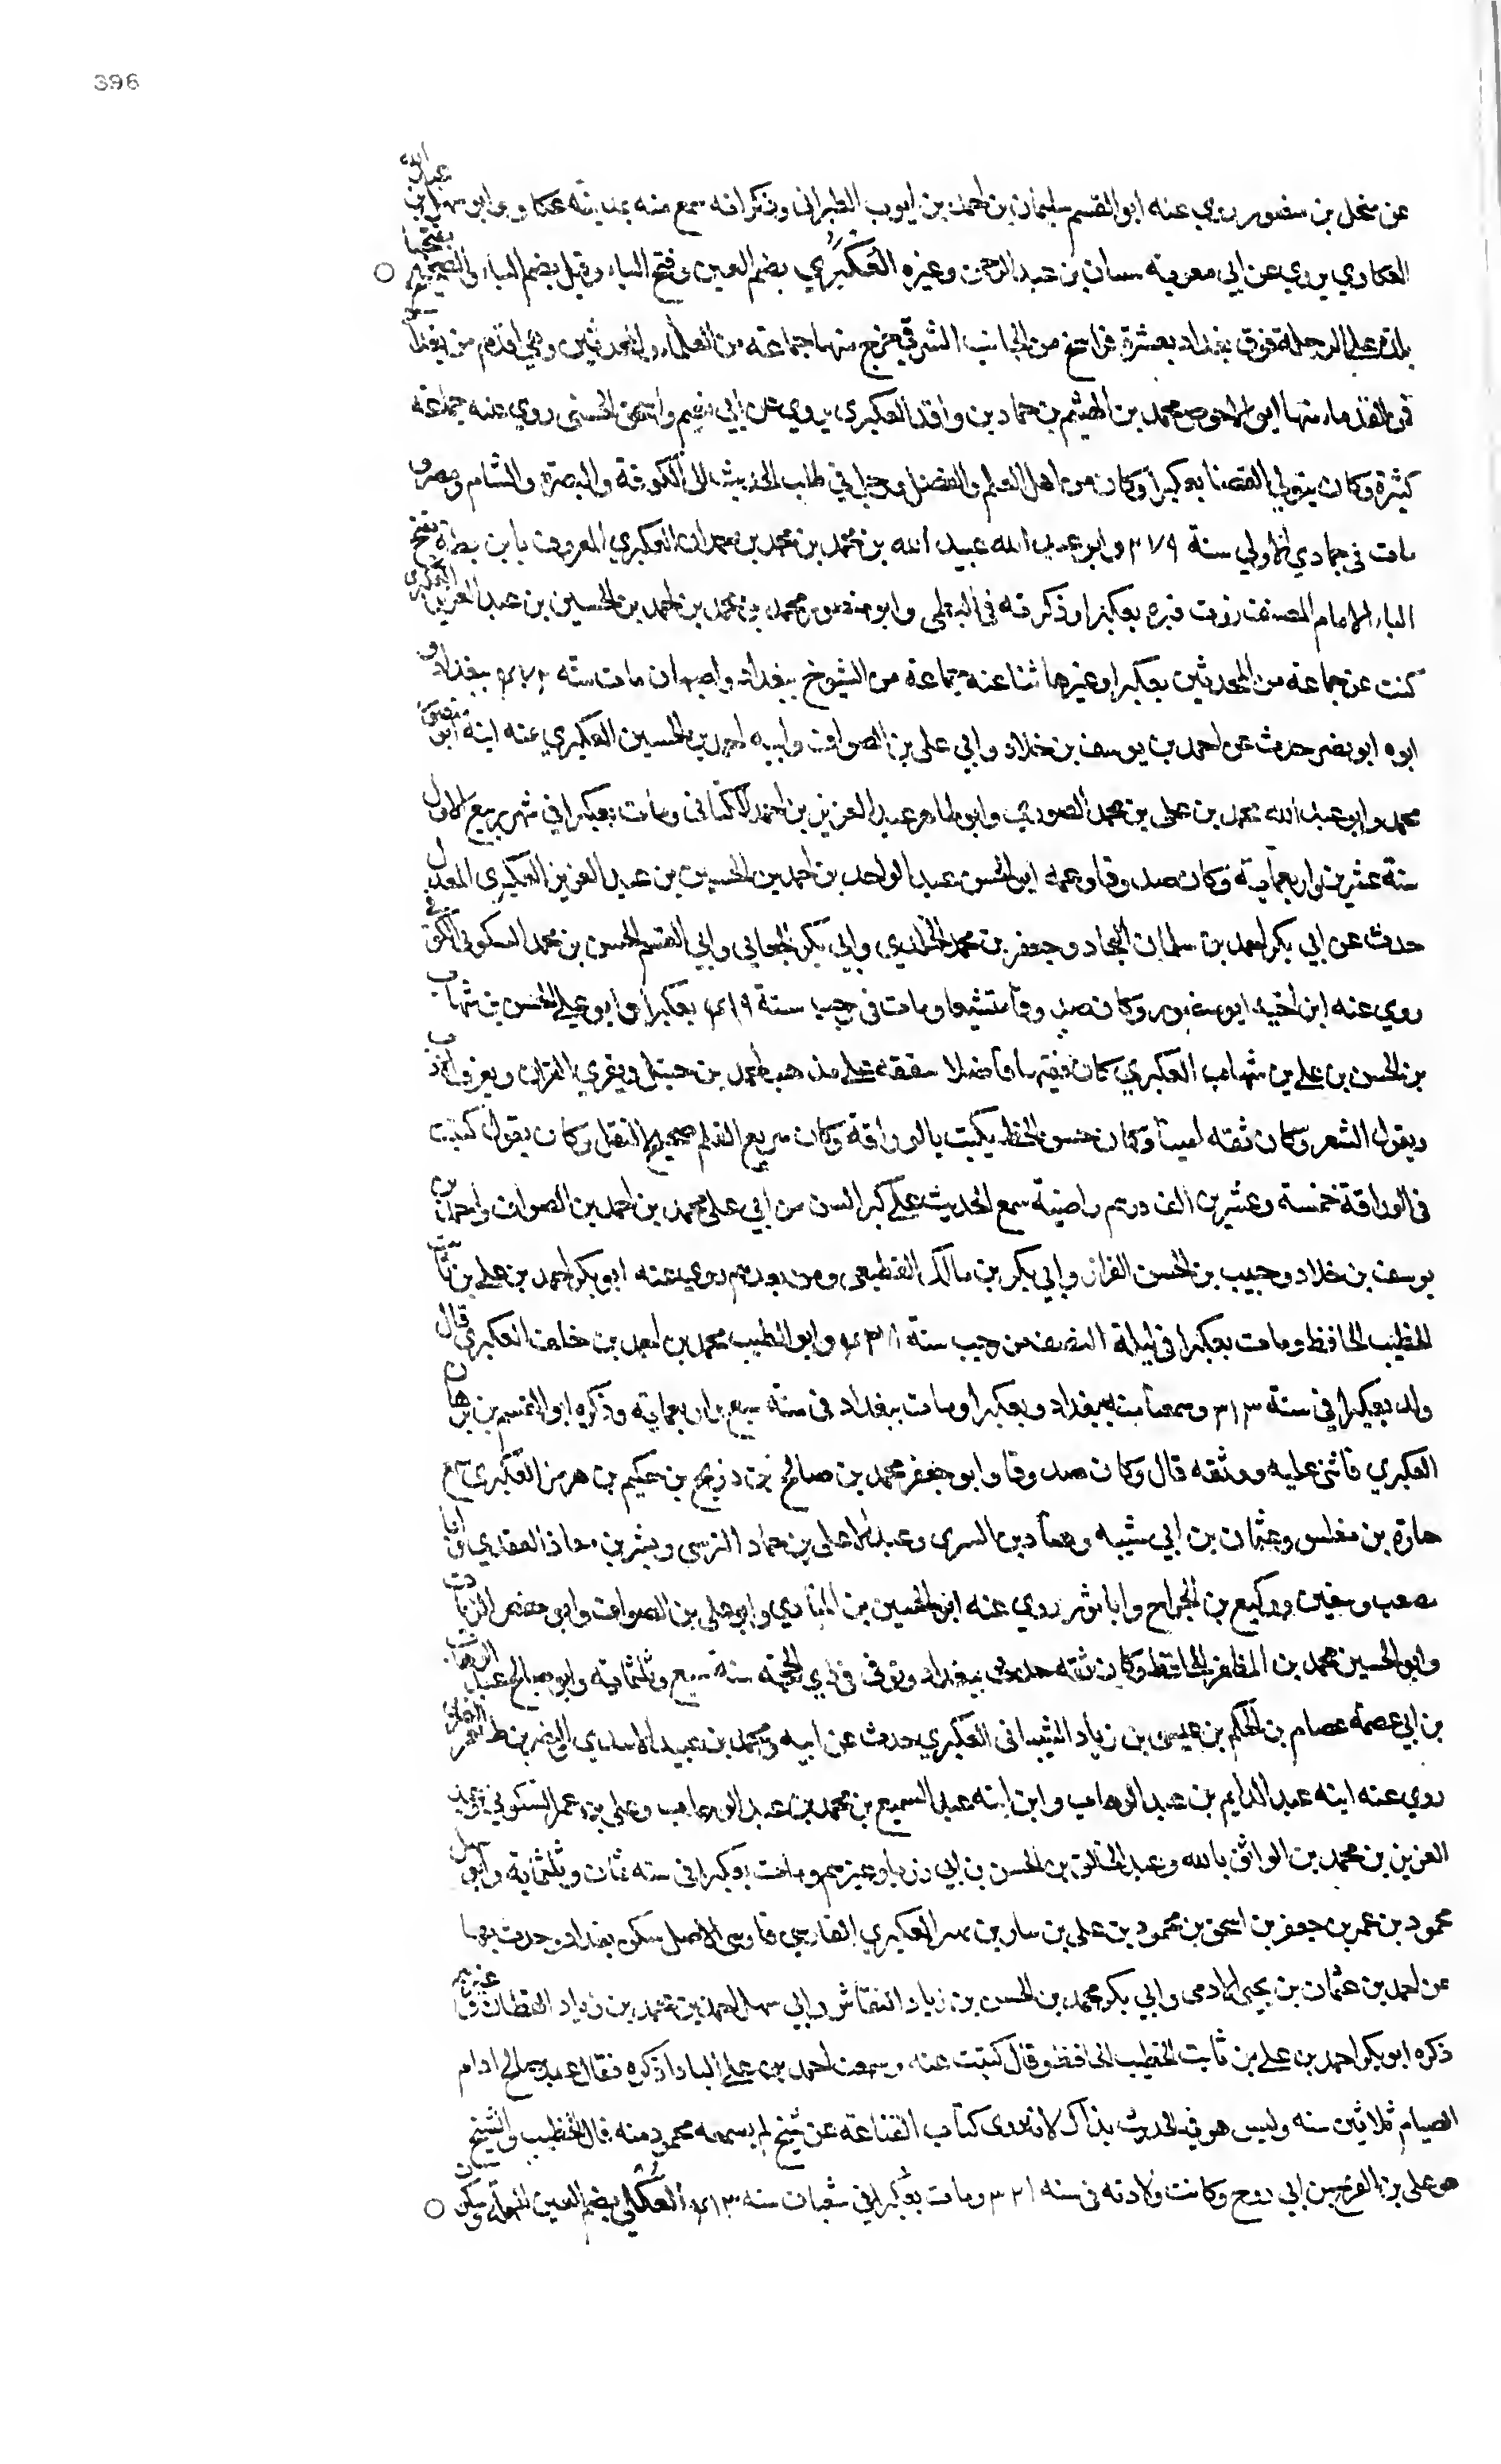 396
عن منخل بن منصور روي عنه ابو القسم سليمان بن احمد بن ايوب الطبراني وذكر انه سمع منه بمدينة عكا وابو سهل بن عبد الله
العكاوي يروي عن ابي معوية بن عبد الرحمن وغيره العكبري بضم العين وفتح الباء وقيل بضم الباء والصحيح بفتحها
بلدة على الدجلة فوق بغداد بعشرة فراسخ من الجانب الشرقي خرج منها جماعة من العلماء والمحدثين وهي اقدم من بغداد
فمن القدماء منها ابو الاحوص محمد بن الهيثم بن حماد بن واقد العكبري يروي عن ابي نعيم واسحق الحنيني روي عنه جماعة
كثيرة وكان يتولي القضا بعكبرا وكان من اهل العلم والفضل رحل في طلب الحديث الى الكوفة والبصرة والشام ومصر و
مات في جمادي الاولي سنة ٢٧٩ وابو عبد الله عبيد الله بن محمد بن محمد بن حمدان العكبري المعروف بابن بطة بفتح
الباء الامام المصنف زرت قبره بعكبرا وذكرته في البطي وابو منصور محمد بن محمد بن احمد بن الحسين بن عبد العزيز العكبري
كتب عن جماعة من المحدثين بعكبرا وغيرها ثنا عنه جماعة من الشيوخ ببغداد واصبهان مات سنة ٤٧٢ ببغداد و
ابوه ابو نصر حدث عن احمد بن يوسف بن خلاد وابي علي بن الصواف وابيه احمد بن الحسين العكبري عنه ابنه ابو منصور
محمد وابو عبد الله محمد بن علي بن محمد الصوري وابو طاهر عبد العزيز بن احمد الكتاني ومات بعكبرا في شهر ربيع الاول
سنة عشرين واربعماية وكان صدوقا وعمه ابو الحسن عبد الواحد بن احمد بن الحسين بن عبد العزيز العكبري المعدل
حدث عن ابي بكر احمد بن سلمان النجاد وجعفر بن محمد الخلدي وابي بكر الجعابي وابي القسم الحسن بن محمد السكوني الكوفي
روي عنه ابن اخيه ابو منصور وكان صدوقا متشيعا ومات في رجب سنة ٤١٩ بعكبرا وابو علي الحسن بن شهاب
بن الحسن بن علي بن شهاب العكبري كان فقيها فاضلا تفقه على مذهب احمد بن حنبل ويقري القران ويعرف الادب
ويقول الشعر وكان ثقة امينا وكان حسن الخط يكتب بالوراقة وكان سريع القلم صحيح النقل وكان يقول كسبت
في الوراقة خمسة وعشرين الف درهم راضية سمع الحديث على كبر السن من ابي علي محمد بن احمد بن الصواف واحمد بن
يوسف بن خلاد وحبيب بن الحسن القزاز وابي بكر بن مالك القطيعي ومن بعدهم روي عنه ابو بكر احمد بن علي بن ثابت
الخطيب الحافظ ومات بعكبرا في ليلة النصف من رجب سنة ٤٢٨ وابو الطيب محمد بن احمد بن خلف العكبري قال
ولد بعكبرا في سنة ٣١٣ وسمعنا منه ببغداد وبعكبرا ومات ببغداد في سنة سبع واربعماية وذكره ابو القسم بن برهان
العكبري فاثني عليه ووثقه قال وكان صدوقا وابو جعفر محمد بن صالح بن ذريح بن حكيم بن هرمز العكبري سمع
جبارة بن مغلس وعثمان بن ابي شيبه وهناد بن السري وعبد الاعلي بن حماد النرسي وبشر بن معاذ العقدي وابا
مصعب وسفين بن وكيع بن الجراح وابا ثور روي عنه ابو الحسين بن المنادي وابو علي بن الصواف وابو حفص الزيات
وابو الحسين محمد بن المظفر الحافظ وكان ثقة حدث ببغداد وتوفي في ذي الحجة سنة سبع وثلثماية وابو صالح عبد الوهاب
بن ابي عصمة عصام بن الحكم بن عيسى بن زياد الشيباني العكبري حدث عن ابيه ومحمد بن عبيد الاسدي والنضر بن طاهر
روي عنه ابنه عبد الدايم بن عبد الوهاب وابن ابنه عبد السميع بن محمد بن عبد الوهاب وعلي بن عمر السكوني وعبد
العزيز بن محمد بن الواثق بالله وعبد الخالق بن الحسن بن ابي روبا وغيرهم ومات بعكبرا في سنة ثمان وثلثماية وابو سهل
محمود بن عمر بن جعفر بن اسحق بن محمود بن علي بن العكبري الفارسي فارسي الاصل سكن بغداد وحدث بها
عن احمد بن عثمان بن يحيى الادمي وابي بكر محمد بن الحسن بن زياد النقاش وابي سهل احمد بن محمد بن زياد القطان وغيرهم
ذكره ابو بكر احمد بن علي بن ثابت الخطيب الحافظ وقال كتبت عنه وسمعت احمد بن علي البادا ذكره فقال عبد صالح ادام
الصيام ثلاثين سنه وليس هو في الحديث بذاك لانه روى كتاب القناعة عن شيخ لم يسمعه محمود منه قال الخطيب والشيخ
هو علي بن الفرج بن ابي روح وكانت ولادته في سنه ٣٢١ ومات بعكبرا في شعبان سنه ٤١٣ العكلي بضم العين المهملة وسكون